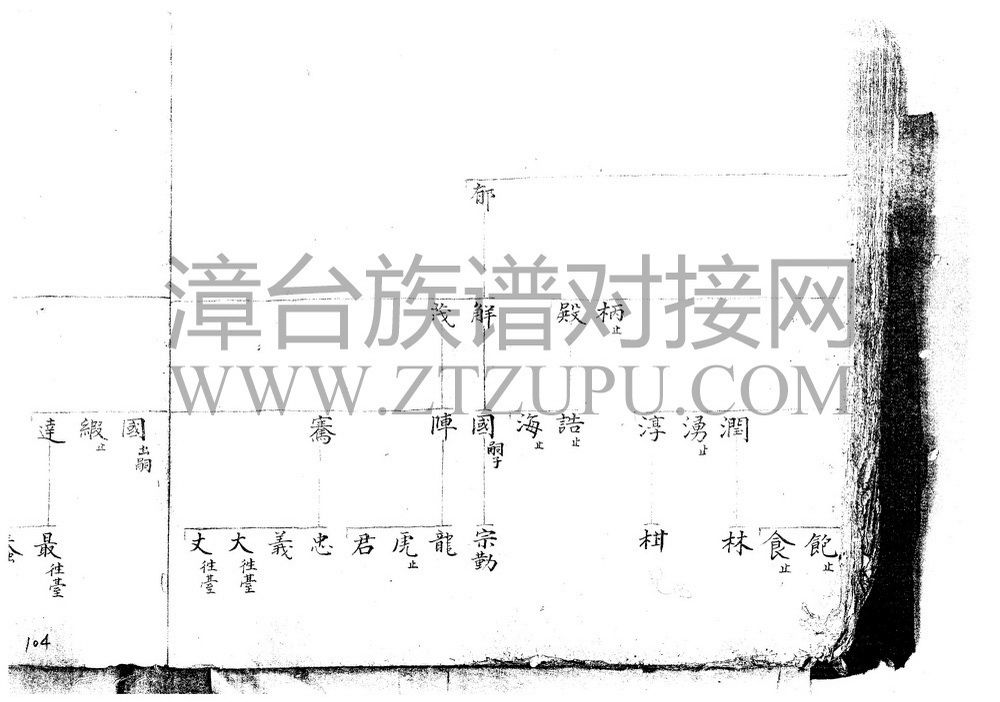 郁
柄止
殿
解
茂
潤
湧止
淳
誥止
海止
國嗣子
陣
騫
國出嗣
緞止
達
飽止
食止
林
柑
宗勤
龍
虎止
君
忠
義
大往臺
丈往臺
最往臺
104
漳台族谱对接网
WWW.ZTZUPU.COM